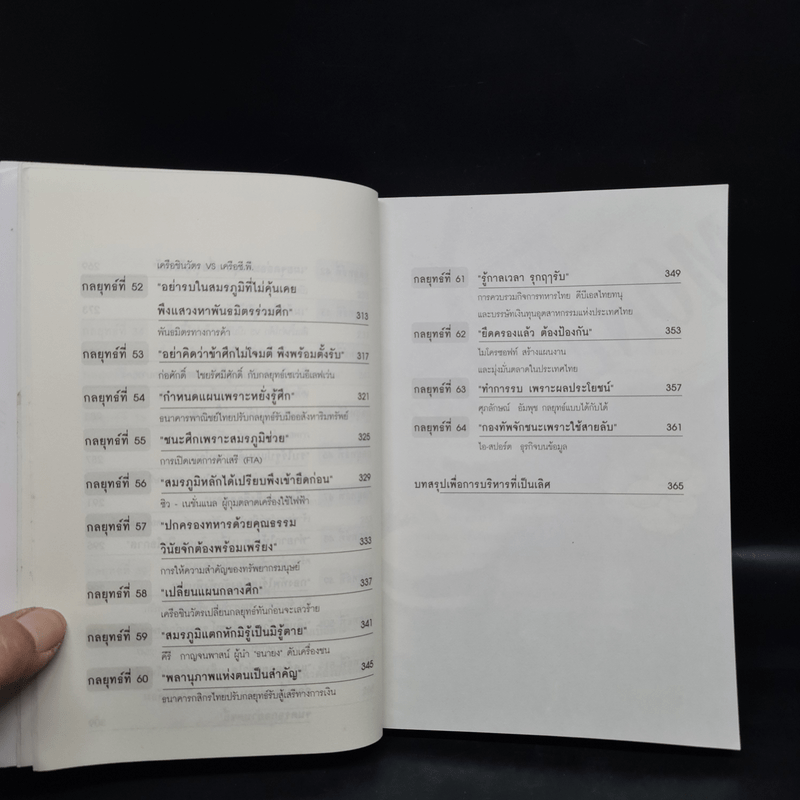 เครือชินวัตร VS เครือซี.พี.
กลยุทธ์ที่ 52 "อย่ารบในสมรภูมิที่ไม่คุ้นเคย
พึงแสวงหาพันธมิตรร่วมศึก" 313
พันธมิตรทางการค้า
กลยุทธ์ที่ 53 "อย่าคิดว่าข้าศึกไม่โจมตี พึงพร้อมตั้งรับ" 317
ก่อศักดิ์ ไชยรัศมีศักดิ์ กับกลยุทธ์เซเว่นอีเลฟเว่น
กลยุทธ์ที่ 54 "กำหนดแผนเพราะหยั่งรู้ศึก" 321
ธนาคารพาณิชย์ไทยปรับกลยุทธ์รับมืออสังหาริมทรัพย์
กลยุทธ์ที่ 55 "ชนะศึกเพราะสมรภูมิช่วย" 325
การเปิดเขตการค้าเสรี (FTA)
กลยุทธ์ที่ 56 "สมรภูมิหลักได้เปรียบพึงเข้ายึดก่อน" 329
ชิว - เนชั่นแนล ผู้กุมตลาดเครื่องใช้ไฟฟ้า
กลยุทธ์ที่ 57 "ปกครองทหารด้วยคุณธรรม
วินัยจักต้องพร้อมเพรียง" 333
การให้ความสำคัญของทรัพยากรมนุษย์
กลยุทธ์ที่ 58 "เปลี่ยนแผนกลางศึก" 337
เครือชินวัตรเปลี่ยนกลยุทธ์ทันก่อนจะเลวร้าย
กลยุทธ์ที่ 59 "สมรภูมิแตกหักมิรู้เป็นมิรู้ตาย" 341
คีรี กาญจนพาสน์ ผู้นำ "ธนายง" ดับเครื่องชน
กลยุทธ์ที่ 60 "พลานุภาพแห่งตนเป็นสำคัญ" 345
ธนาคารกสิกรไทยปรับกลยุทธ์รับสู้เสรีทางการเงิน
กลยุทธ์ที่ 61 "รู้กาลเวลา รุกฤๅรับ" 349
การควบรวมกิจการทหารไทย ดีบีเอสไทยทนุ
และบรรษัทเงินทุนอุตสาหกรรมแห่งประเทศไทย
กลยุทธ์ที่ 62 "ยึดครองแล้ว ต้องป้องกัน" 353
ไมโครซอฟท์ สร้างแผนงาน
และมุ่งมั่นตลาดในประเทศไทย
กลยุทธ์ที่ 63 "ทำการรบ เพราะผลประโยชน์" 357
ศุภลักษณ์ อัมพุช กลยุทธ์แบบได้กับได้
กลยุทธ์ที่ 64 "กองทัพจักชนะเพราะใช้สายลับ" 361
ไอ-สปอร์ต ธุรกิจบนข้อมูล
บทสรุปเพื่อการบริหารที่เป็นเลิศ 365